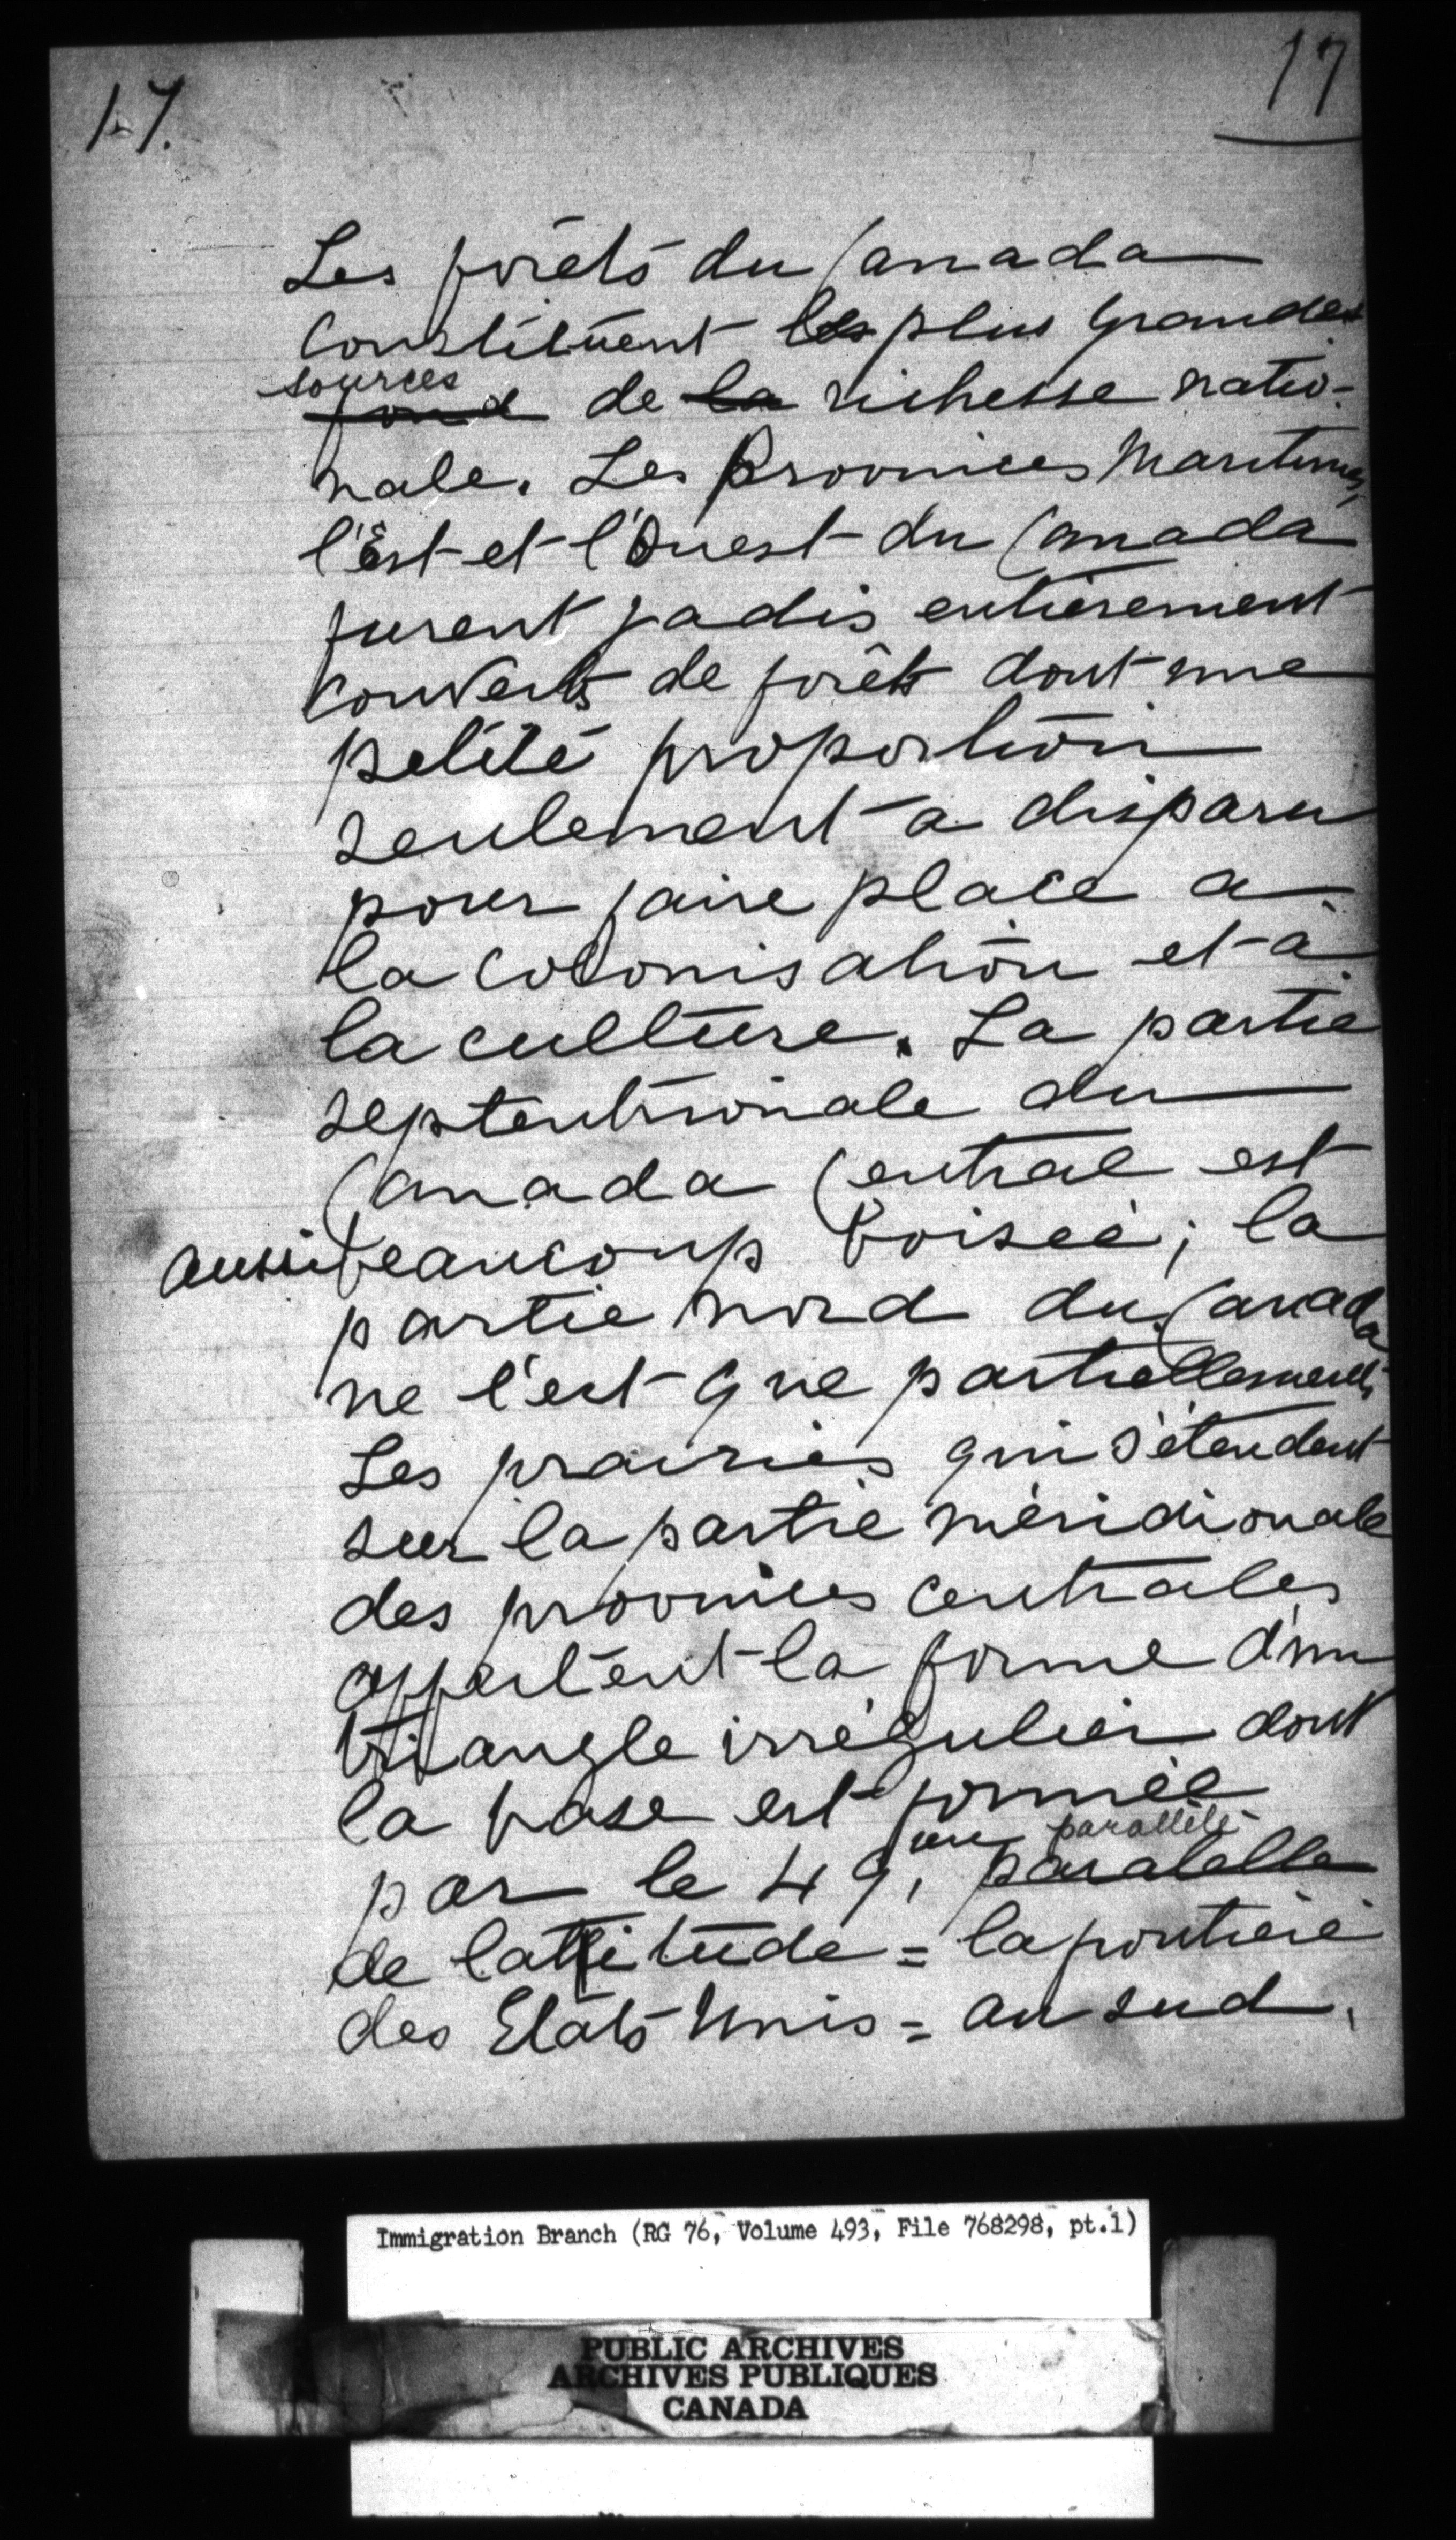 17.
17
Les forêts du Canada
Constituent les plus grandes
sources
fond de la richesse natio-
nale. Les Provinces Maritimes,
l'Est et l'Ouest du Canada
furent jadis entièrement
couverts de forêts dont une
petite proportion
seulement a disparu
pour faire place a
la colonisation et à
la culture. La partie
septentrionale du
Canada Central est
aussi beaucoup boisée; la
partie nord du Canada
ne l'est que partiellement.
Les prairies qui s'étendent
sur la partie méridionale
des provinces centrales
affectent la forme d'un
triangle irrégulier dont
la base est formée
par le 49, ème parallèle
paralelle
de lattitude = la frontière
des Etats Unis = au sud.
Immigration Branch (RG 76, Volume 493, File 768298, pt.1)
PUBLIC ARCHIVES
ARCHIVES PUBLIQUES
CANADA